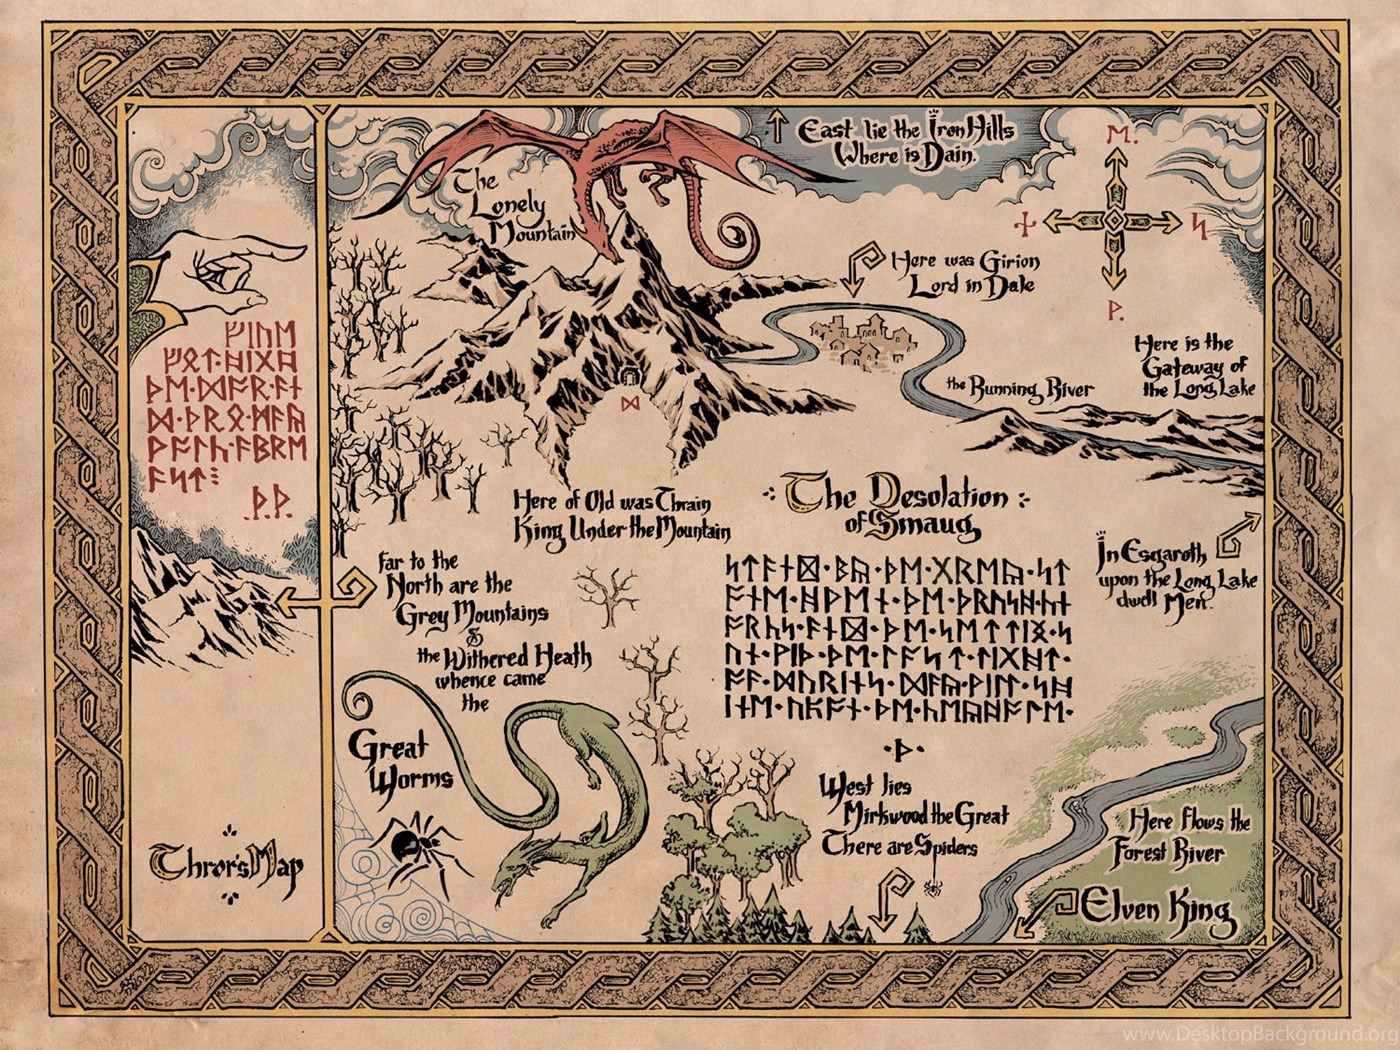 East lie the Iron Hills
Where is Dain.
ᛖ.
ᚾ
ᛋ
ᚹ.
The
Lonely
Mountain
Here was Girion
Lord in Dale
ᚠᛁᚢᛖ
ᚦᛖ·ᛞᚩᚱ·ᚪᚾ
ᚹᚪᛚᚳ·ᚪᛒᚱᛖ
ᚪᛋᛏ⁝
·ᚦ·ᚦ·
Here is the
Gateway of
the Long Lake
the Running River
ᛞ
Here of Old was Thrain
King Under the Mountain
The Desolation
of Smaug
ᛋᛏᚪᚾᛞ·ᛒᚣ·ᚦᛖ·ᚷᚱᛖᚣ·ᛋᛏ
ᚩᚾᛖ·ᚻᚹᛖᚾ·ᚦᛖ·ᚦᚱᚢᛋᚻ·ᚳᚾ
ᚪᚾᛞ·ᚦᛖ·ᛋᛖᛏᛏᛁᛝ·ᛋ
ᚢᚾ·ᚹᛁᚦ·ᚦᛖ·ᛚᚪᛋᛏ·ᛚᛁᚷᚻᛏ·
ᚩᚠ·ᛞᚢᚱᛁᚾᛋ·ᛞᚪᚣ·ᚹᛁᛚᛚ·ᛋᚻ
ᛁᚾᛖ·ᚢᛈᚩᚾ·ᚦᛖ·ᚳᛖᚣᚻᚩᛚᛖ·
·ᚦ·
In Esgaroth
upon the Long Lake
dwell Men.
Far to the
North are the
Grey Mountains
&
the Withered Heath
whence came
the
Great
Worms
West lies
Mirkwood the Great
There are Spiders
Here flows the
Forest River
Elven King
Thror's Map
www.DesktopBackground.org